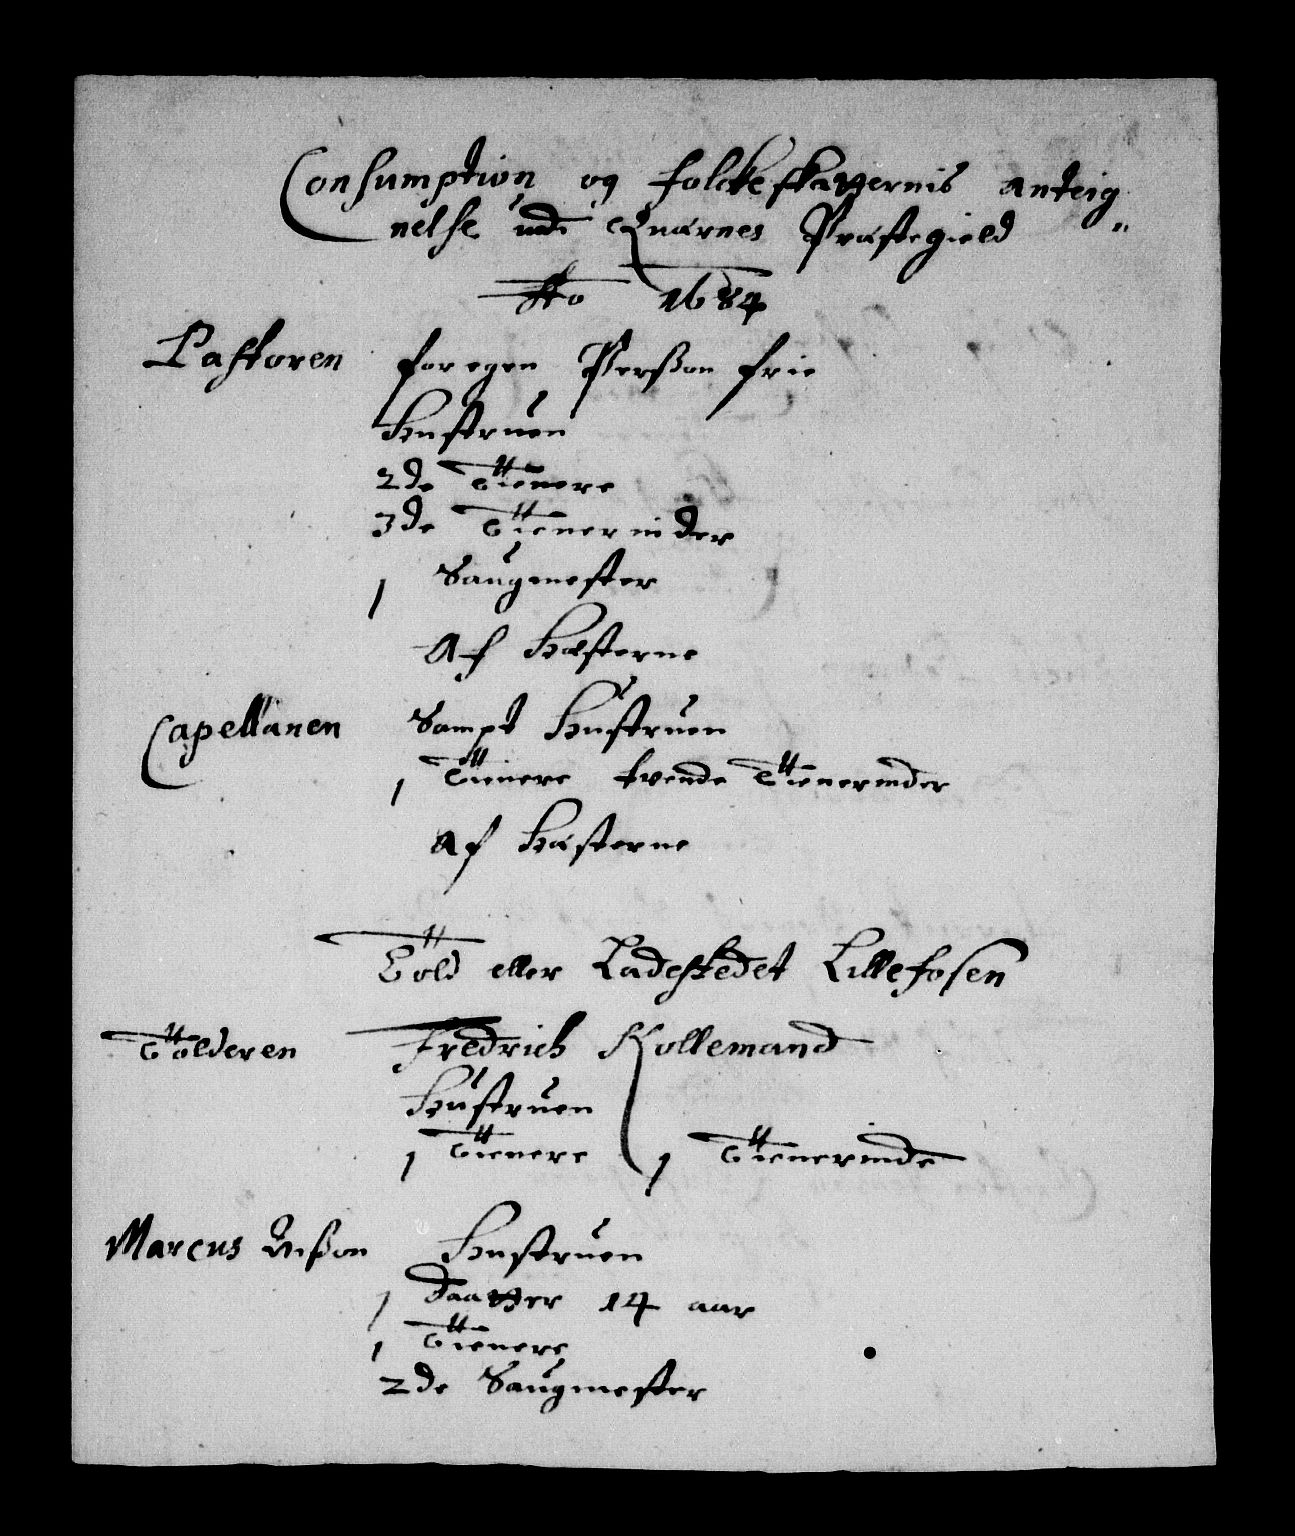 Consumption og folckeskatternis anteig
nelse udi Quærnes Præstegield
Ao 1684
Pastoren for egen Perßon frie
Hustruen
2de Tienere
3de Tienerinder
1 Saugmester
Af Hæsterne
Capellanen Sampt Hustruen
1 Tienere tvende Tienerinder
Af Hæsterne
Told eller Ladestedet Lillefosen
Tolderen Fredrich Kollemand
Hustruen
1 Tienere 1 Tienerinde
Marcus Hustruen
1 Daatter 14 aar
1 Tienere
2de Saugmester